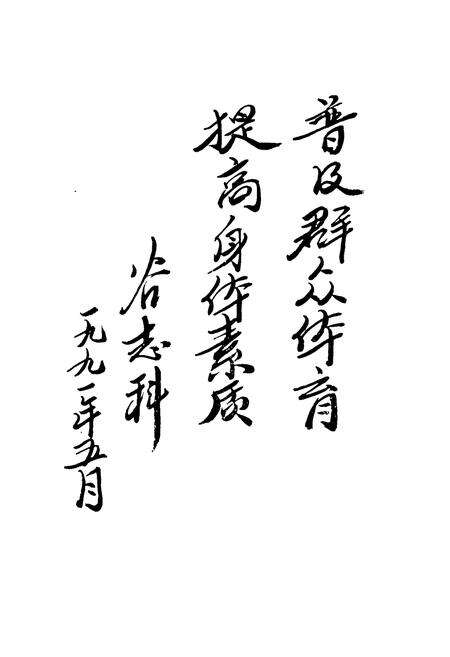 普及群众体育
提高身体素质
谷志科
一九九一年五月